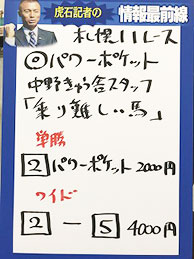 虎石記者の
情報最前線
札幌11レース
◎パワーポケット
中野きゅう舎スタッフ
「乗り難しい馬」
単勝
2 パワーポケット 2000円
ワイド
2 － 5 4000円